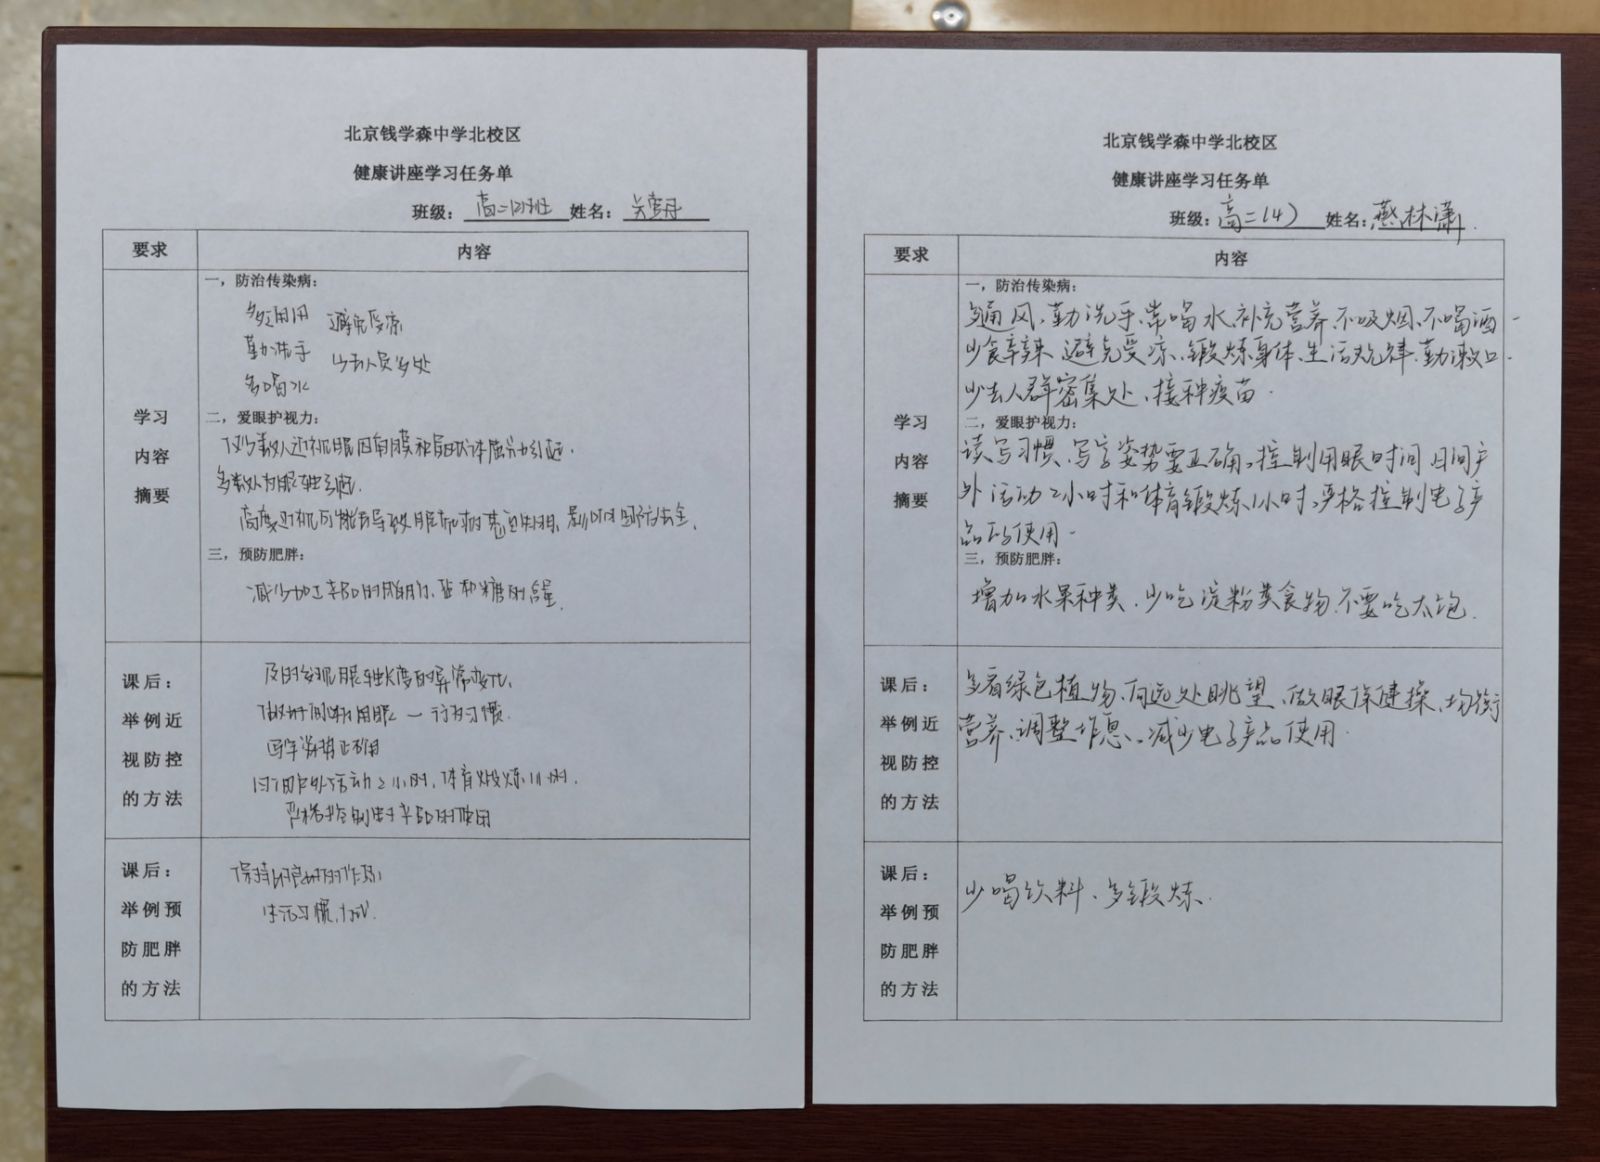 北京钱学森中学北校区
健康讲座学习任务单
班级：高二 班 姓名：
要求 内容
学习
内容
摘要
一，防治传染病：
避免受凉
勤洗手 少去人员多处
多喝水
二，爱眼护视力：
多数为眼轴引起.
三，预防肥胖：
减少加工产品的脂肪、盐和糖的含量.
课后：
举例近
视防控
的方法
及时发现眼轴长度的异常变化、
写字姿势正确
日间户外活动2小时，体育锻炼1小时.
严格控制电子产品的使用
课后：
举例预
防肥胖
的方法
保持良好的作息
生活习惯，
北京钱学森中学北校区
健康讲座学习任务单
班级：高二（4） 姓名：燕林潇
要求 内容
学习
内容
摘要
一，防治传染病：
多通风、勤洗手、常喝水、补充营养、不吸烟、不喝酒、
少食辛辣、避免受凉、锻炼身体、生活规律、勤漱口、
少去人群密集处、接种疫苗.
二，爱眼护视力：
读写习惯、写字姿势要正确、控制用眼时间、日间户
外活动2小时和体育锻炼1小时、严格控制电子产
品的使用.
三，预防肥胖：
增加水果种类、少吃淀粉类食物、不要吃太饱.
课后：
举例近
视防控
的方法
多看绿色植物、向远处眺望、做眼保健操、均衡
营养、调整作息、减少电子产品使用.
课后：
举例预
防肥胖
的方法
少喝饮料、多锻炼.